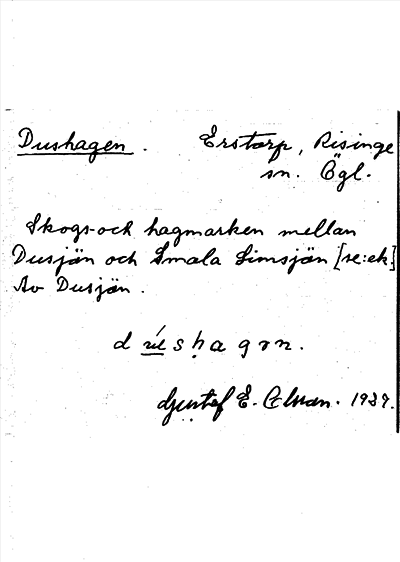 Dushagen. Erstorp, Risinge
sn. Ögl.
Skogs- och hagmarken mellan
Dusjön och Smala Limsjön [se: ek.]
Av Dusjön.
Gustaf E. 1937.